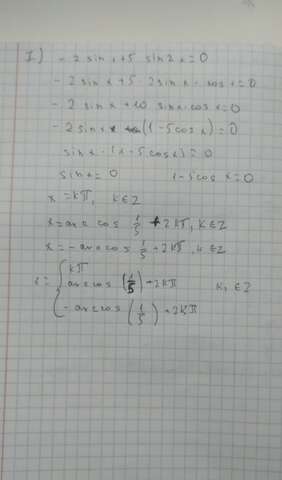 I) - 2 sin x + 5 sin 2x = 0
- 2 sin x + 5 · 2 sin x · cos x = 0
- 2 sin x + 10 sin x · cos x = 0
- 2 sin x (1 - 5 cos x) = 0
sin x · (1 - 5 cos x) = 0
sin x = 0 1 - 5 cos x = 0
x = kπ, k ∈ Z
x = arc cos 1/5 + 2kπ, k ∈ Z
x = - arc cos 1/5 + 2kπ, k ∈ Z
x = { kπ
arc cos (1/5) + 2kπ k, ∈ Z
- arc cos (1/5) + 2kπ